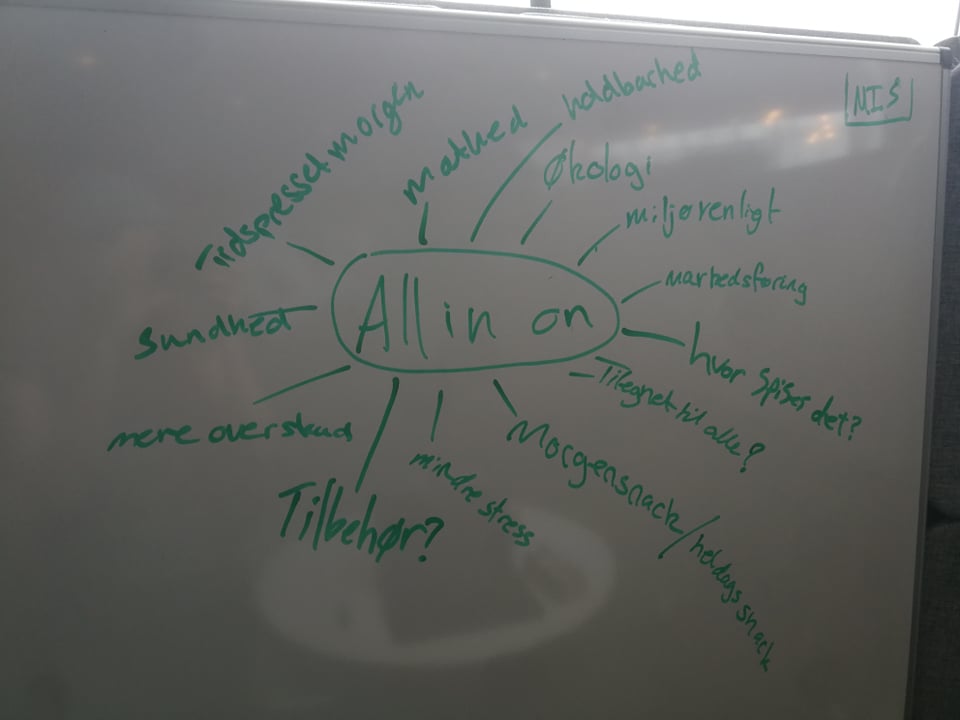 Tidspresset morgen
mæthed
holdbarhed
Økologi
miljøvenligt
markedsføring
hvor spises det?
Tilegnet til alle?
Morgensnack/heldagssnack
mindre stress
Tilbehør?
mere overskud
Sundhed
All in on
NIS